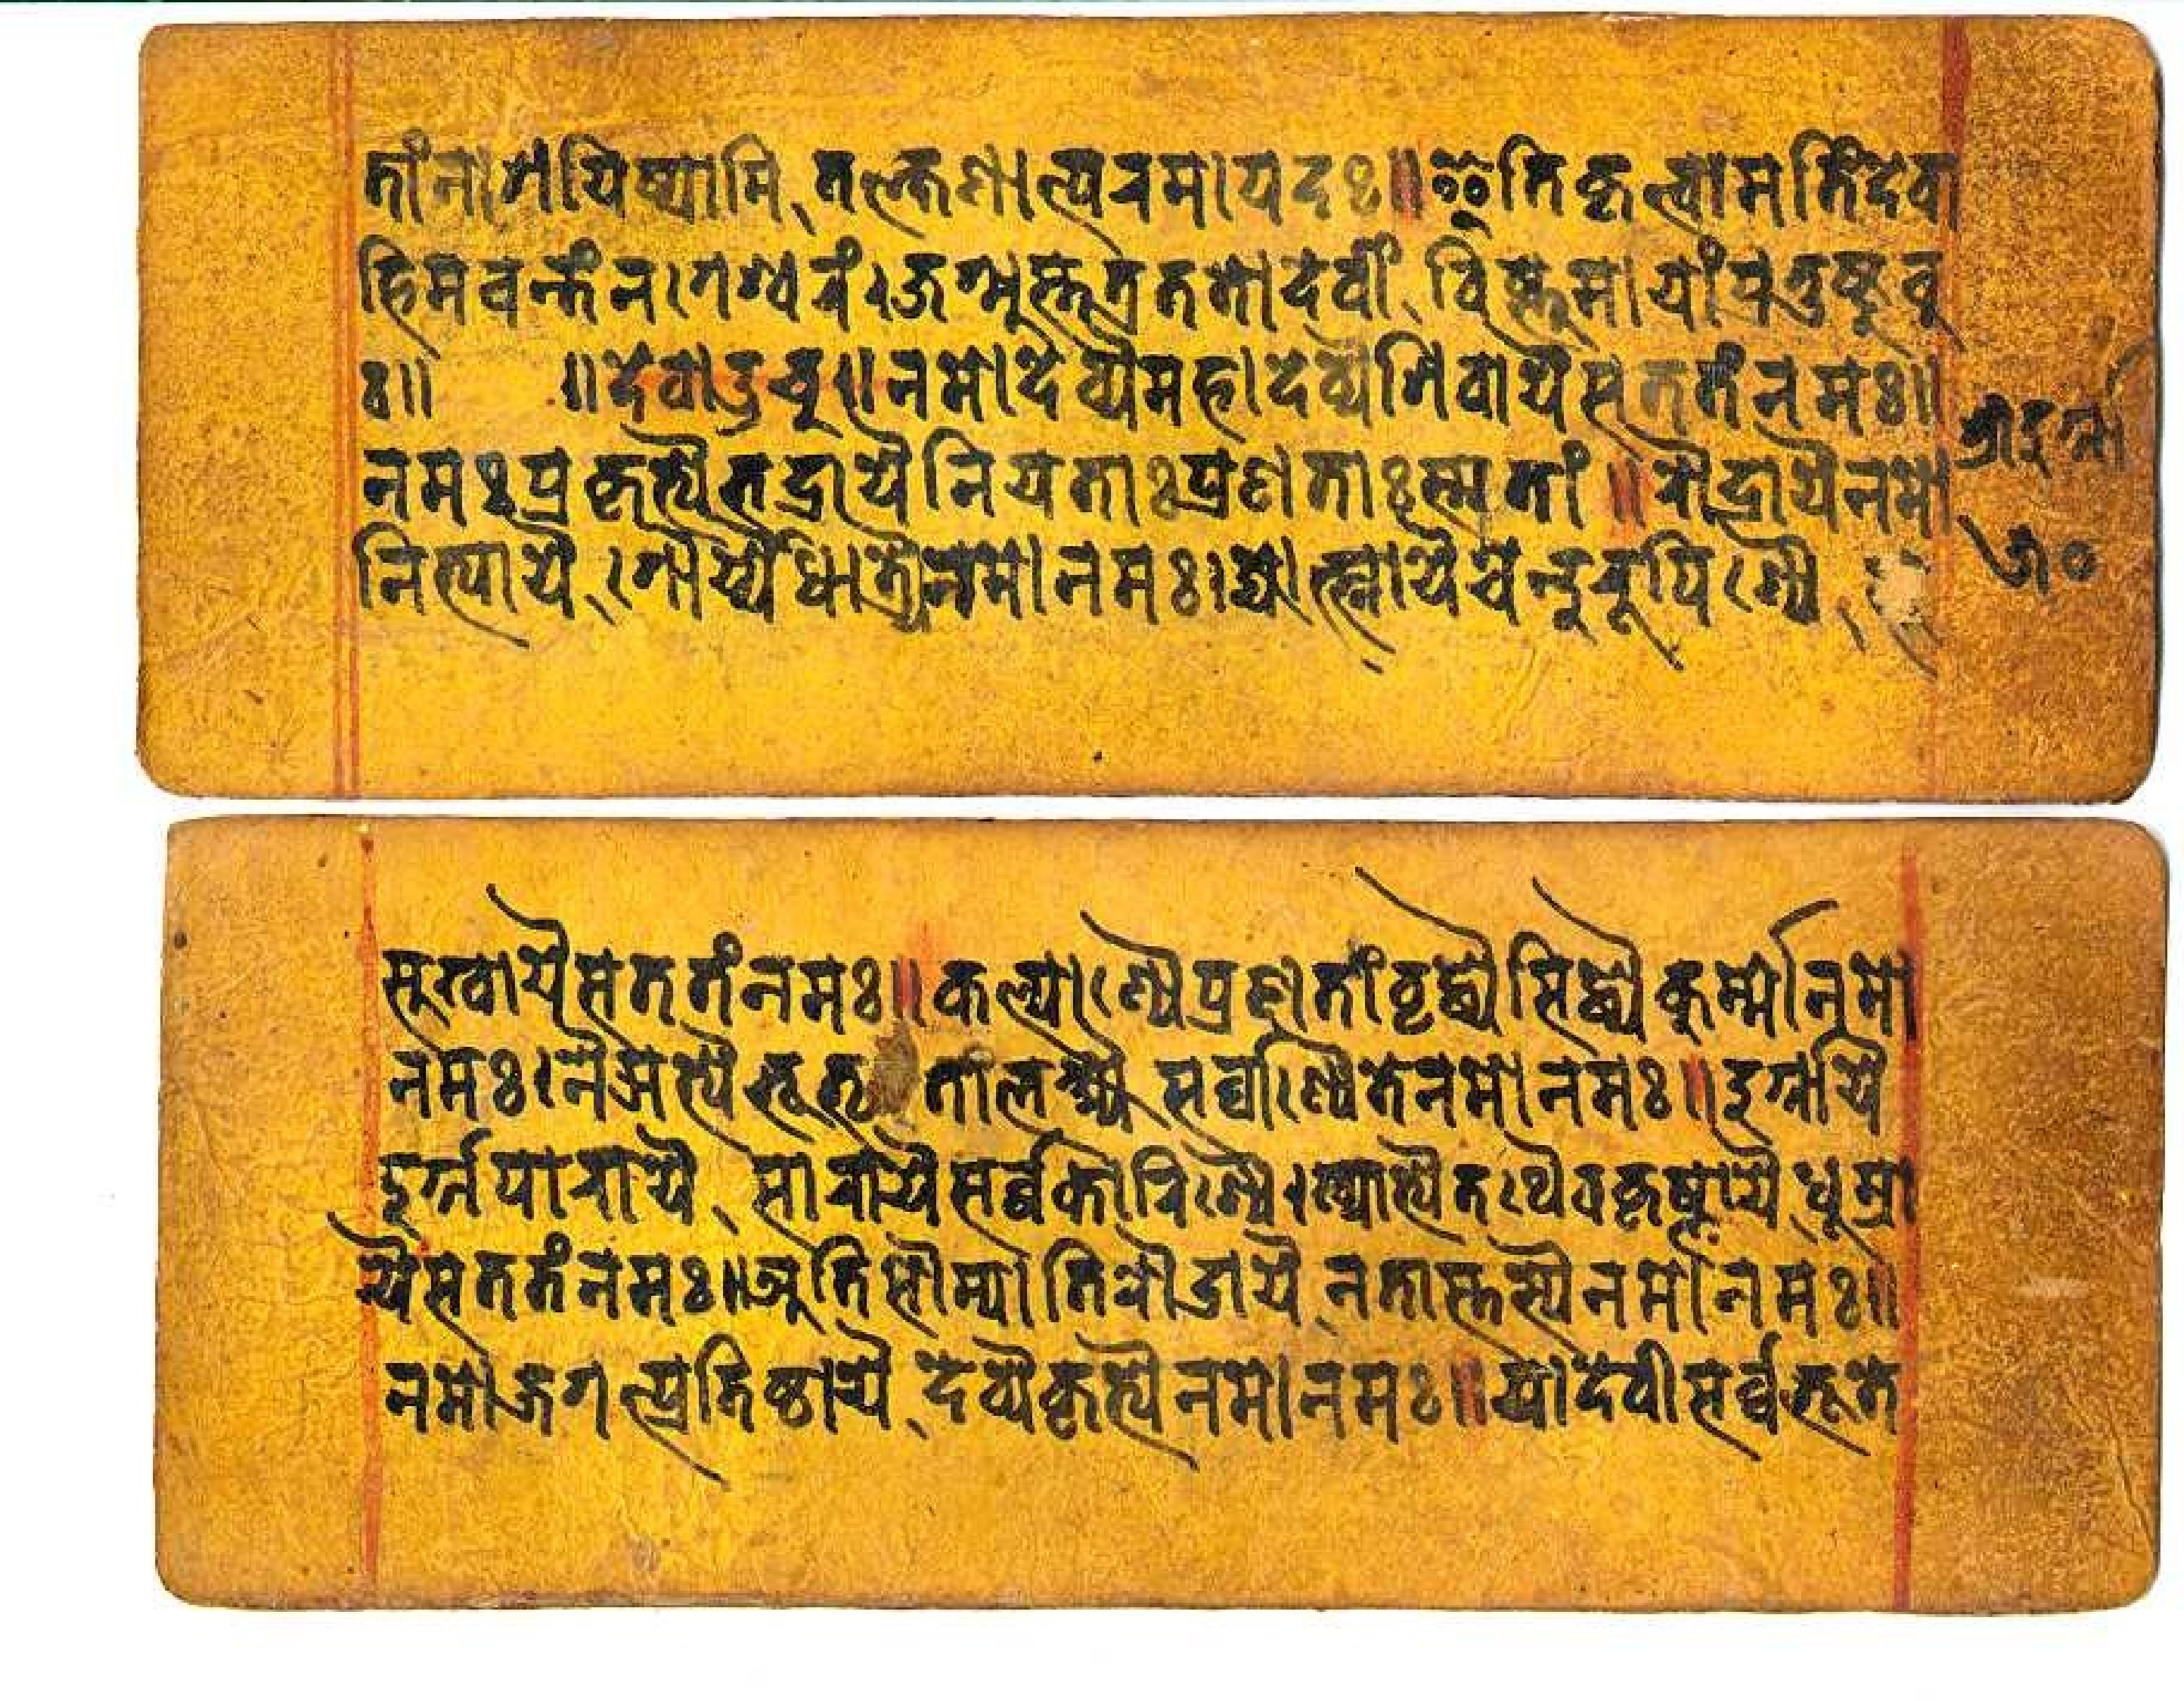 तांनाशयिष्यामि तत्क्षणात्परमापदः॥इतिकृत्वामतिंदेवा
हिमवन्तंनगेश्वरं।जग्मुस्तत्रततोदेवीं विष्णुमायांप्रतुष्टुवु
ः॥ ॥देवाउचु॥नमोदेव्यैमहादेव्यैशिवायैसततंनमः॥
नमःप्रकृत्यैभद्रायैनियताःप्रणताःस्मतां॥रौद्रायैनमो
नित्यायै गौर्य्यैधात्र्यैनमोनमः।ज्योत्स्नायैचेन्दुरूपिण्यै
श्रीदुर्गा
७०
सुखायैसततंनमः॥कल्याण्यैप्रणतांवृद्ध्यैसिद्ध्यैकुर्म्मोनमो
नमः।नैऋत्यैभूभृतांलक्ष्म्यै सर्वाण्यैतेनमोनमः॥दुर्गायै
दुर्गपारायै सारायैसर्व्वकारिण्यै।ख्यात्यैतथैवकृष्णायै धूम्रा
यैसततंनमः॥अतिसौम्यातिरौद्रायै नतास्तस्यैनमोनमः॥
नमोजगत्प्रतिष्ठायै देव्यैकृत्यैनमोनमः॥यादेवीसर्व्वभूते